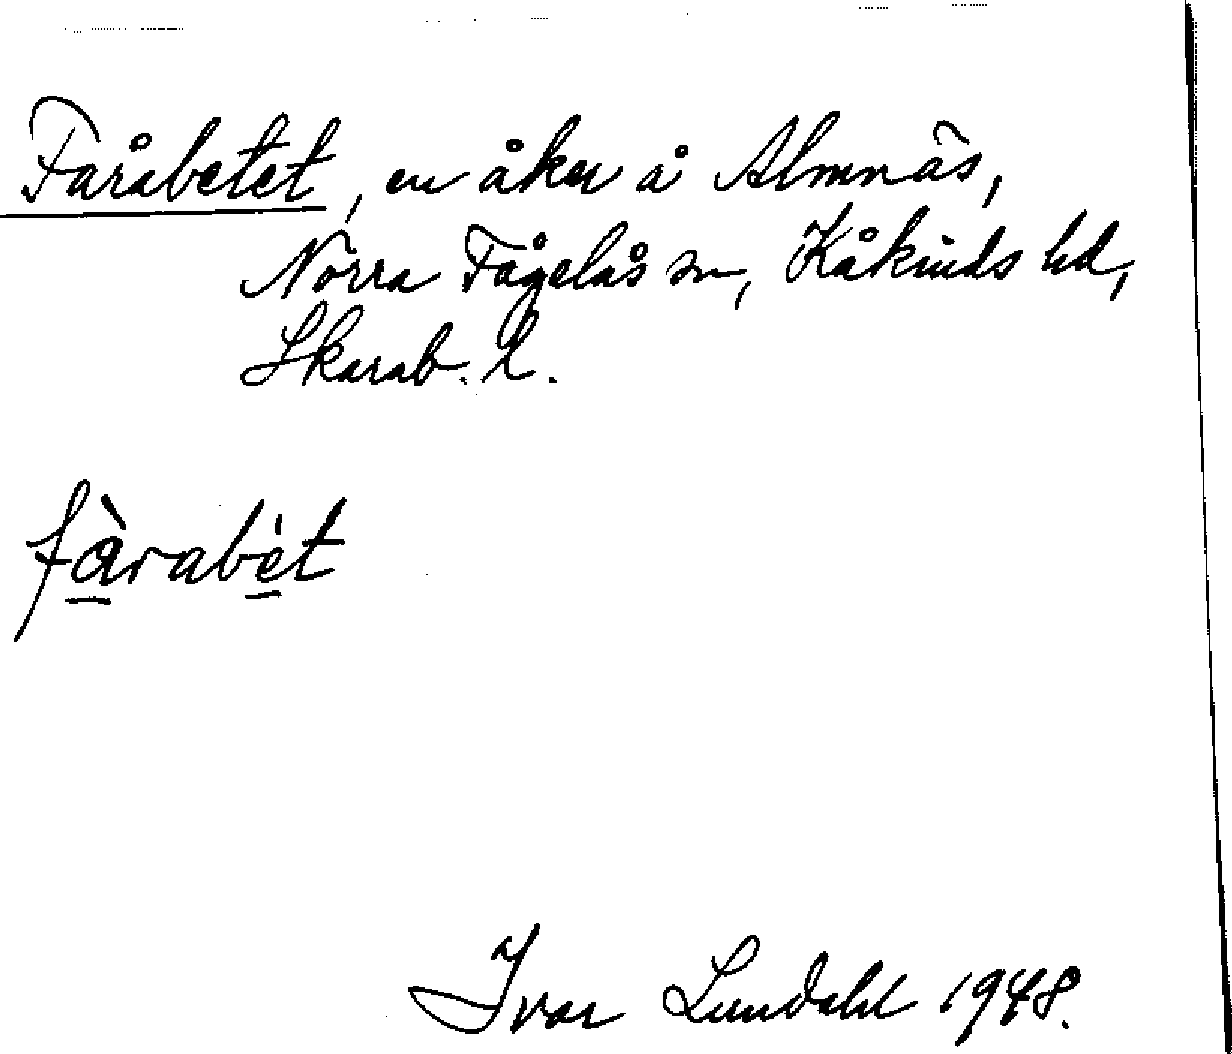 Fårabetet, en åker å Almnäs,
Norra Fågelås sn, Kåkinds hd,
Skarab. l.
fà̲rabè̲t
Ivar Lundahl 1948.